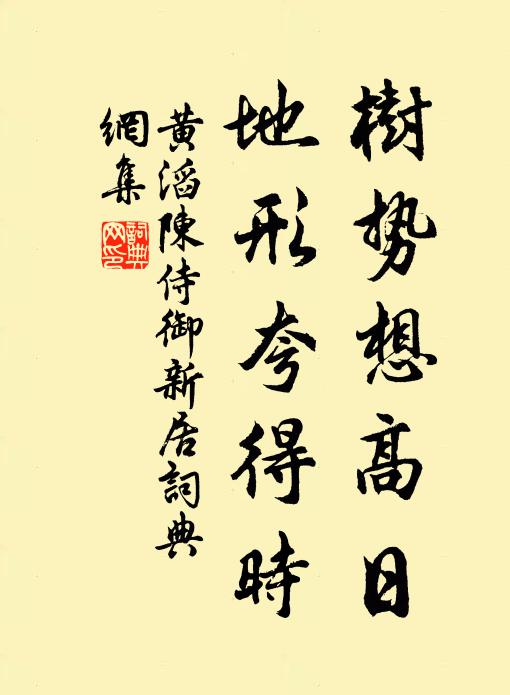 樹势想高日
地形夸得時
黃滔陳侍御新居詞典
網集
詞典
网印